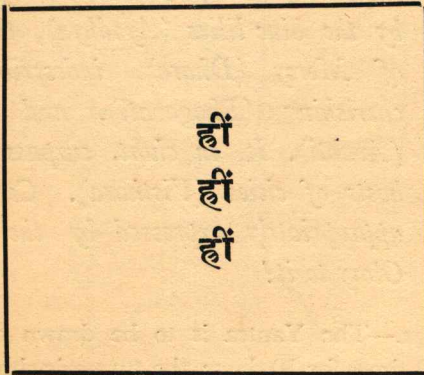 ह्रीं ह्रीं ह्रीं